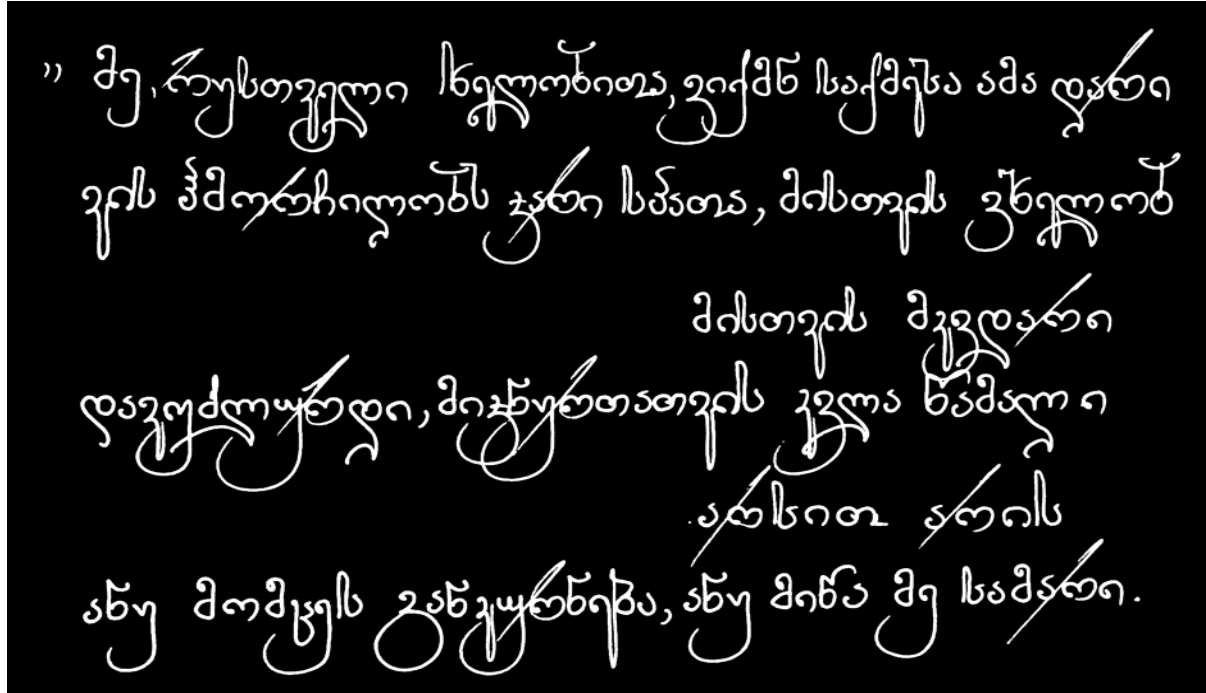 „მე, რუსთველი ხელობითა, ვიქმნ საქმესა ამა დარი
ვის ჰმორჩილობს ჯარი სპათა, მისთვის ვხელობ
მისთვის მკვდარი
დავუძლურდი, მიჯნურთათვის კვლა წამალი
არსით არის
ანუ მომცეს განკურნება, ანუ მიწა მე სამარი.